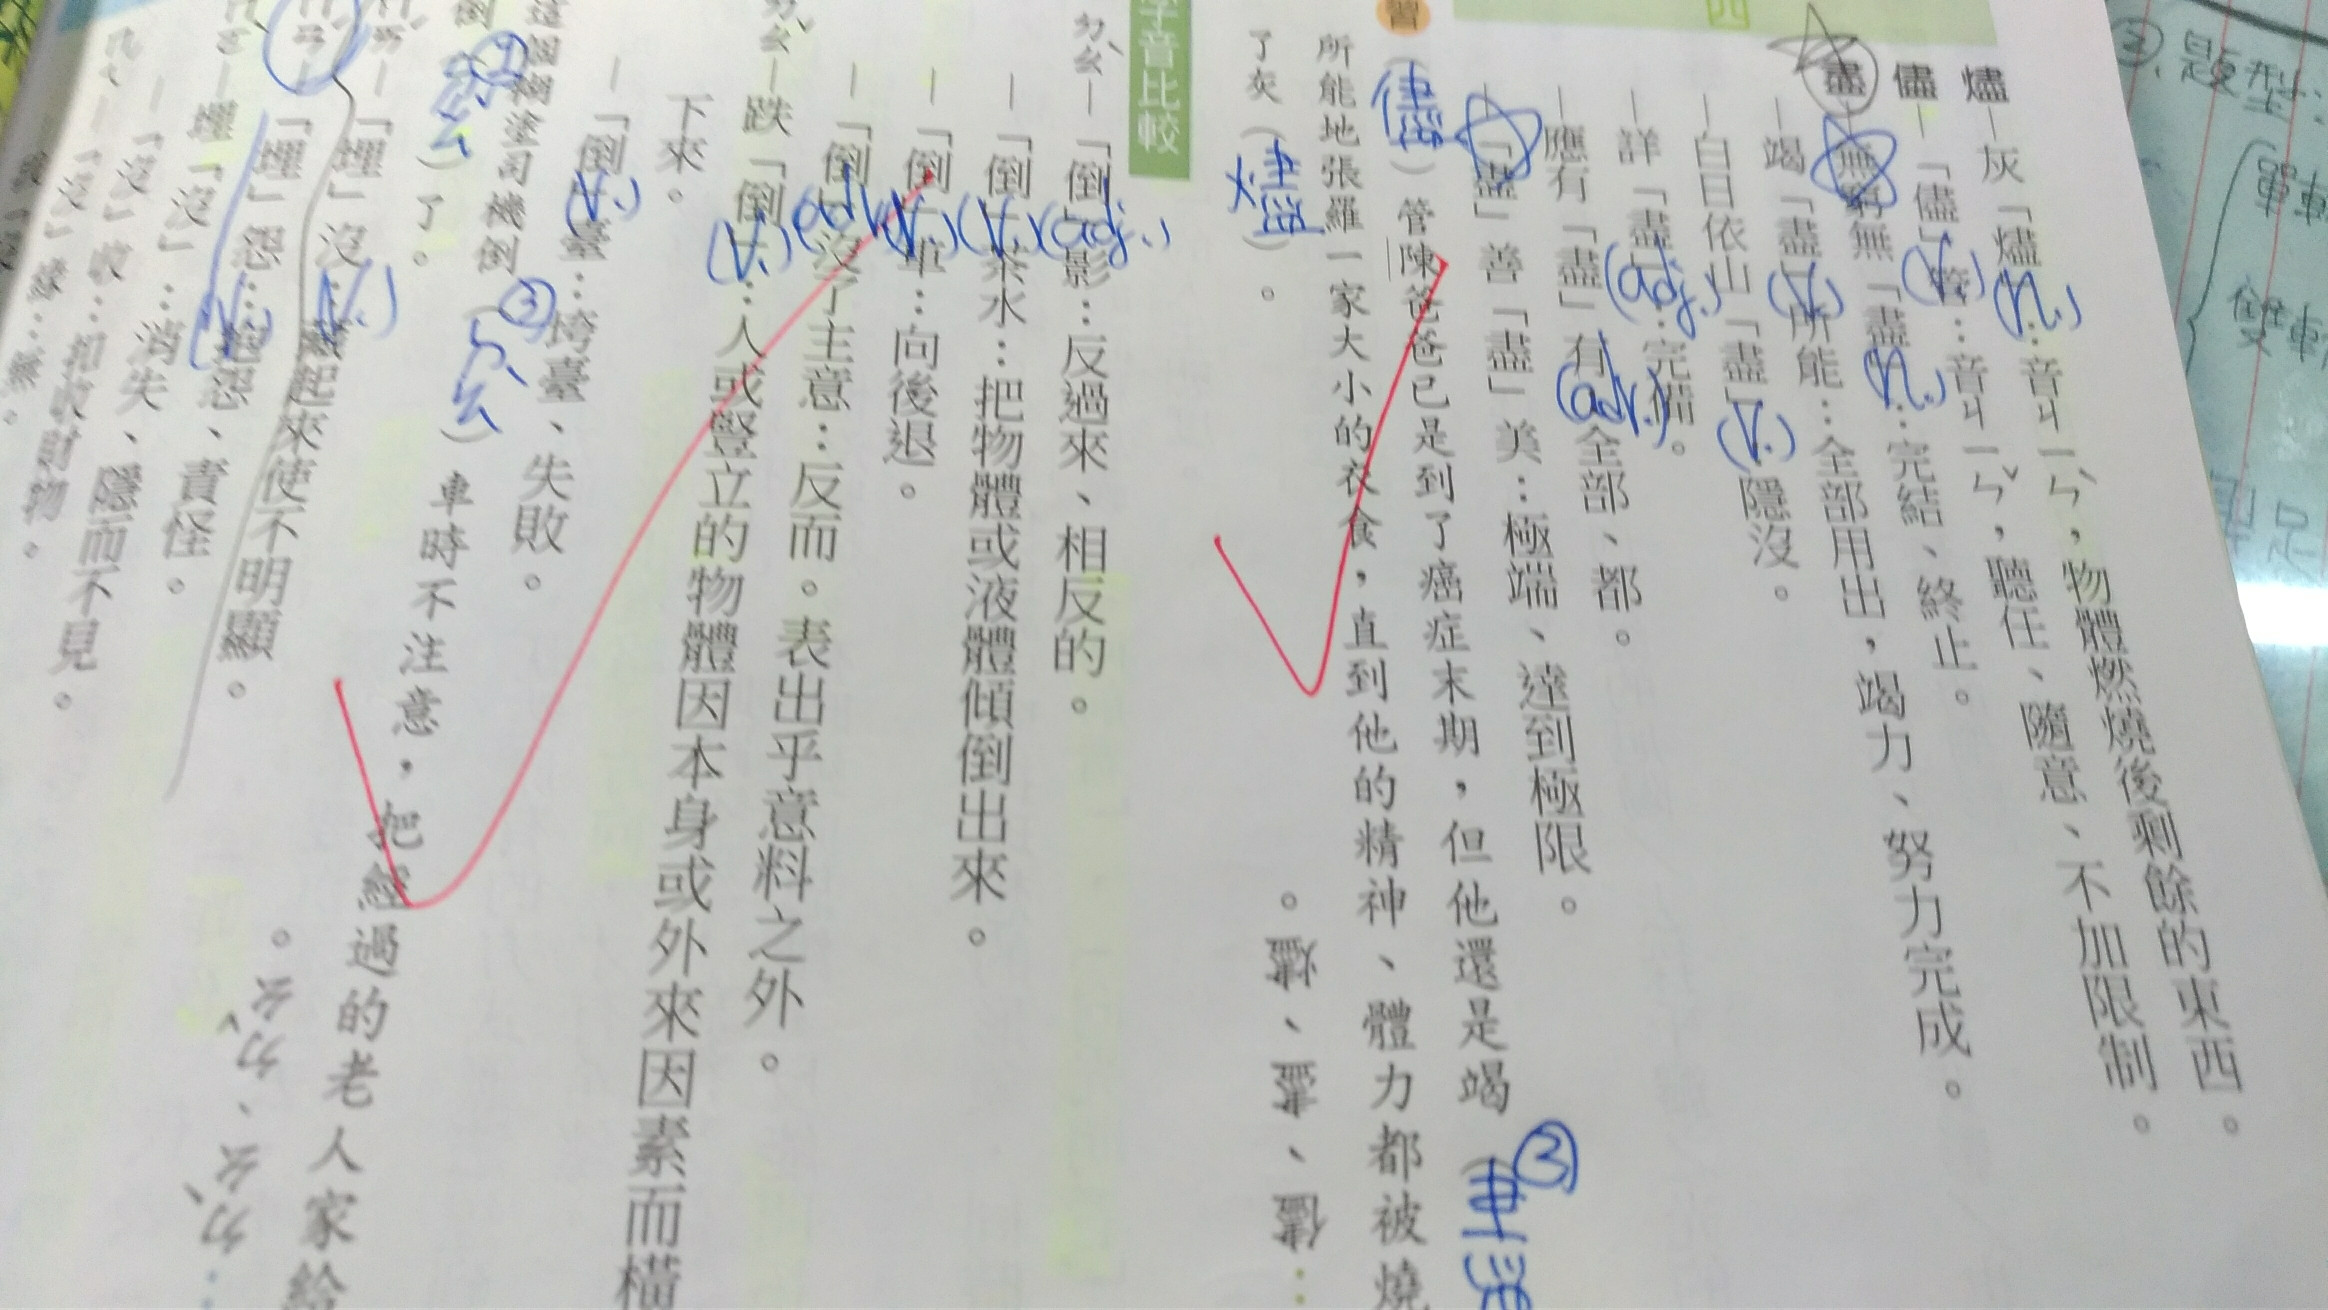 四
燼—灰「燼」(n.)：音ㄐㄧㄣˋ，物體燃燒後剩餘的東西。
儘—「儘」管(V.)：音ㄐㄧㄣˇ，聽任、隨意、不加限制。
盡—無窮無「盡」(n.)：完結、終止。
—竭「盡」(V.)所能：全部用出，竭力、努力完成。
—白日依山「盡」(V.)：隱沒。
—詳「盡」(adj.)：完備。
—應有「盡」有(adv.)：全部、都。
—「盡」善「盡」美：極端、達到極限。
習（儘）管陳爸爸已是到了癌症末期，但他還是竭（③盡
所能地張羅一家大小的衣食，直到他的精神、體力都被燒
了灰（燼）。
儘、盡、燼。
字音比較
ㄉㄠˋ—「倒」(adj.)影：反過來、相反的。
—「倒」(V.)茶水：把物體或液體傾倒出來。
—「倒」(V.)車：向後退。
—「倒」(adv.)沒了主意：反而。表出乎意料之外。
ㄉㄠˇ—跌「倒」(V.)：人或豎立的物體因本身或外來因素而橫
下來。
—「倒」(V.)臺：垮臺、失敗。
這個糊塗司機倒（②ㄉㄠˋ）車時不注意，把經過的老人家給
倒（ㄉㄠˇ）了。
ㄉㄠˋ、ㄉㄠˇ。
ㄇㄞˊ—「埋」沒(V.)：藏起來使不明顯。
ㄇㄢˊ—「埋」怨(V.)：抱怨、責怪。
ㄇㄛˋ—埋「沒」：消失、隱而不見。
—「沒」收：扣收財物。
「沒」緣：無。
②.題型：
單車
雙車